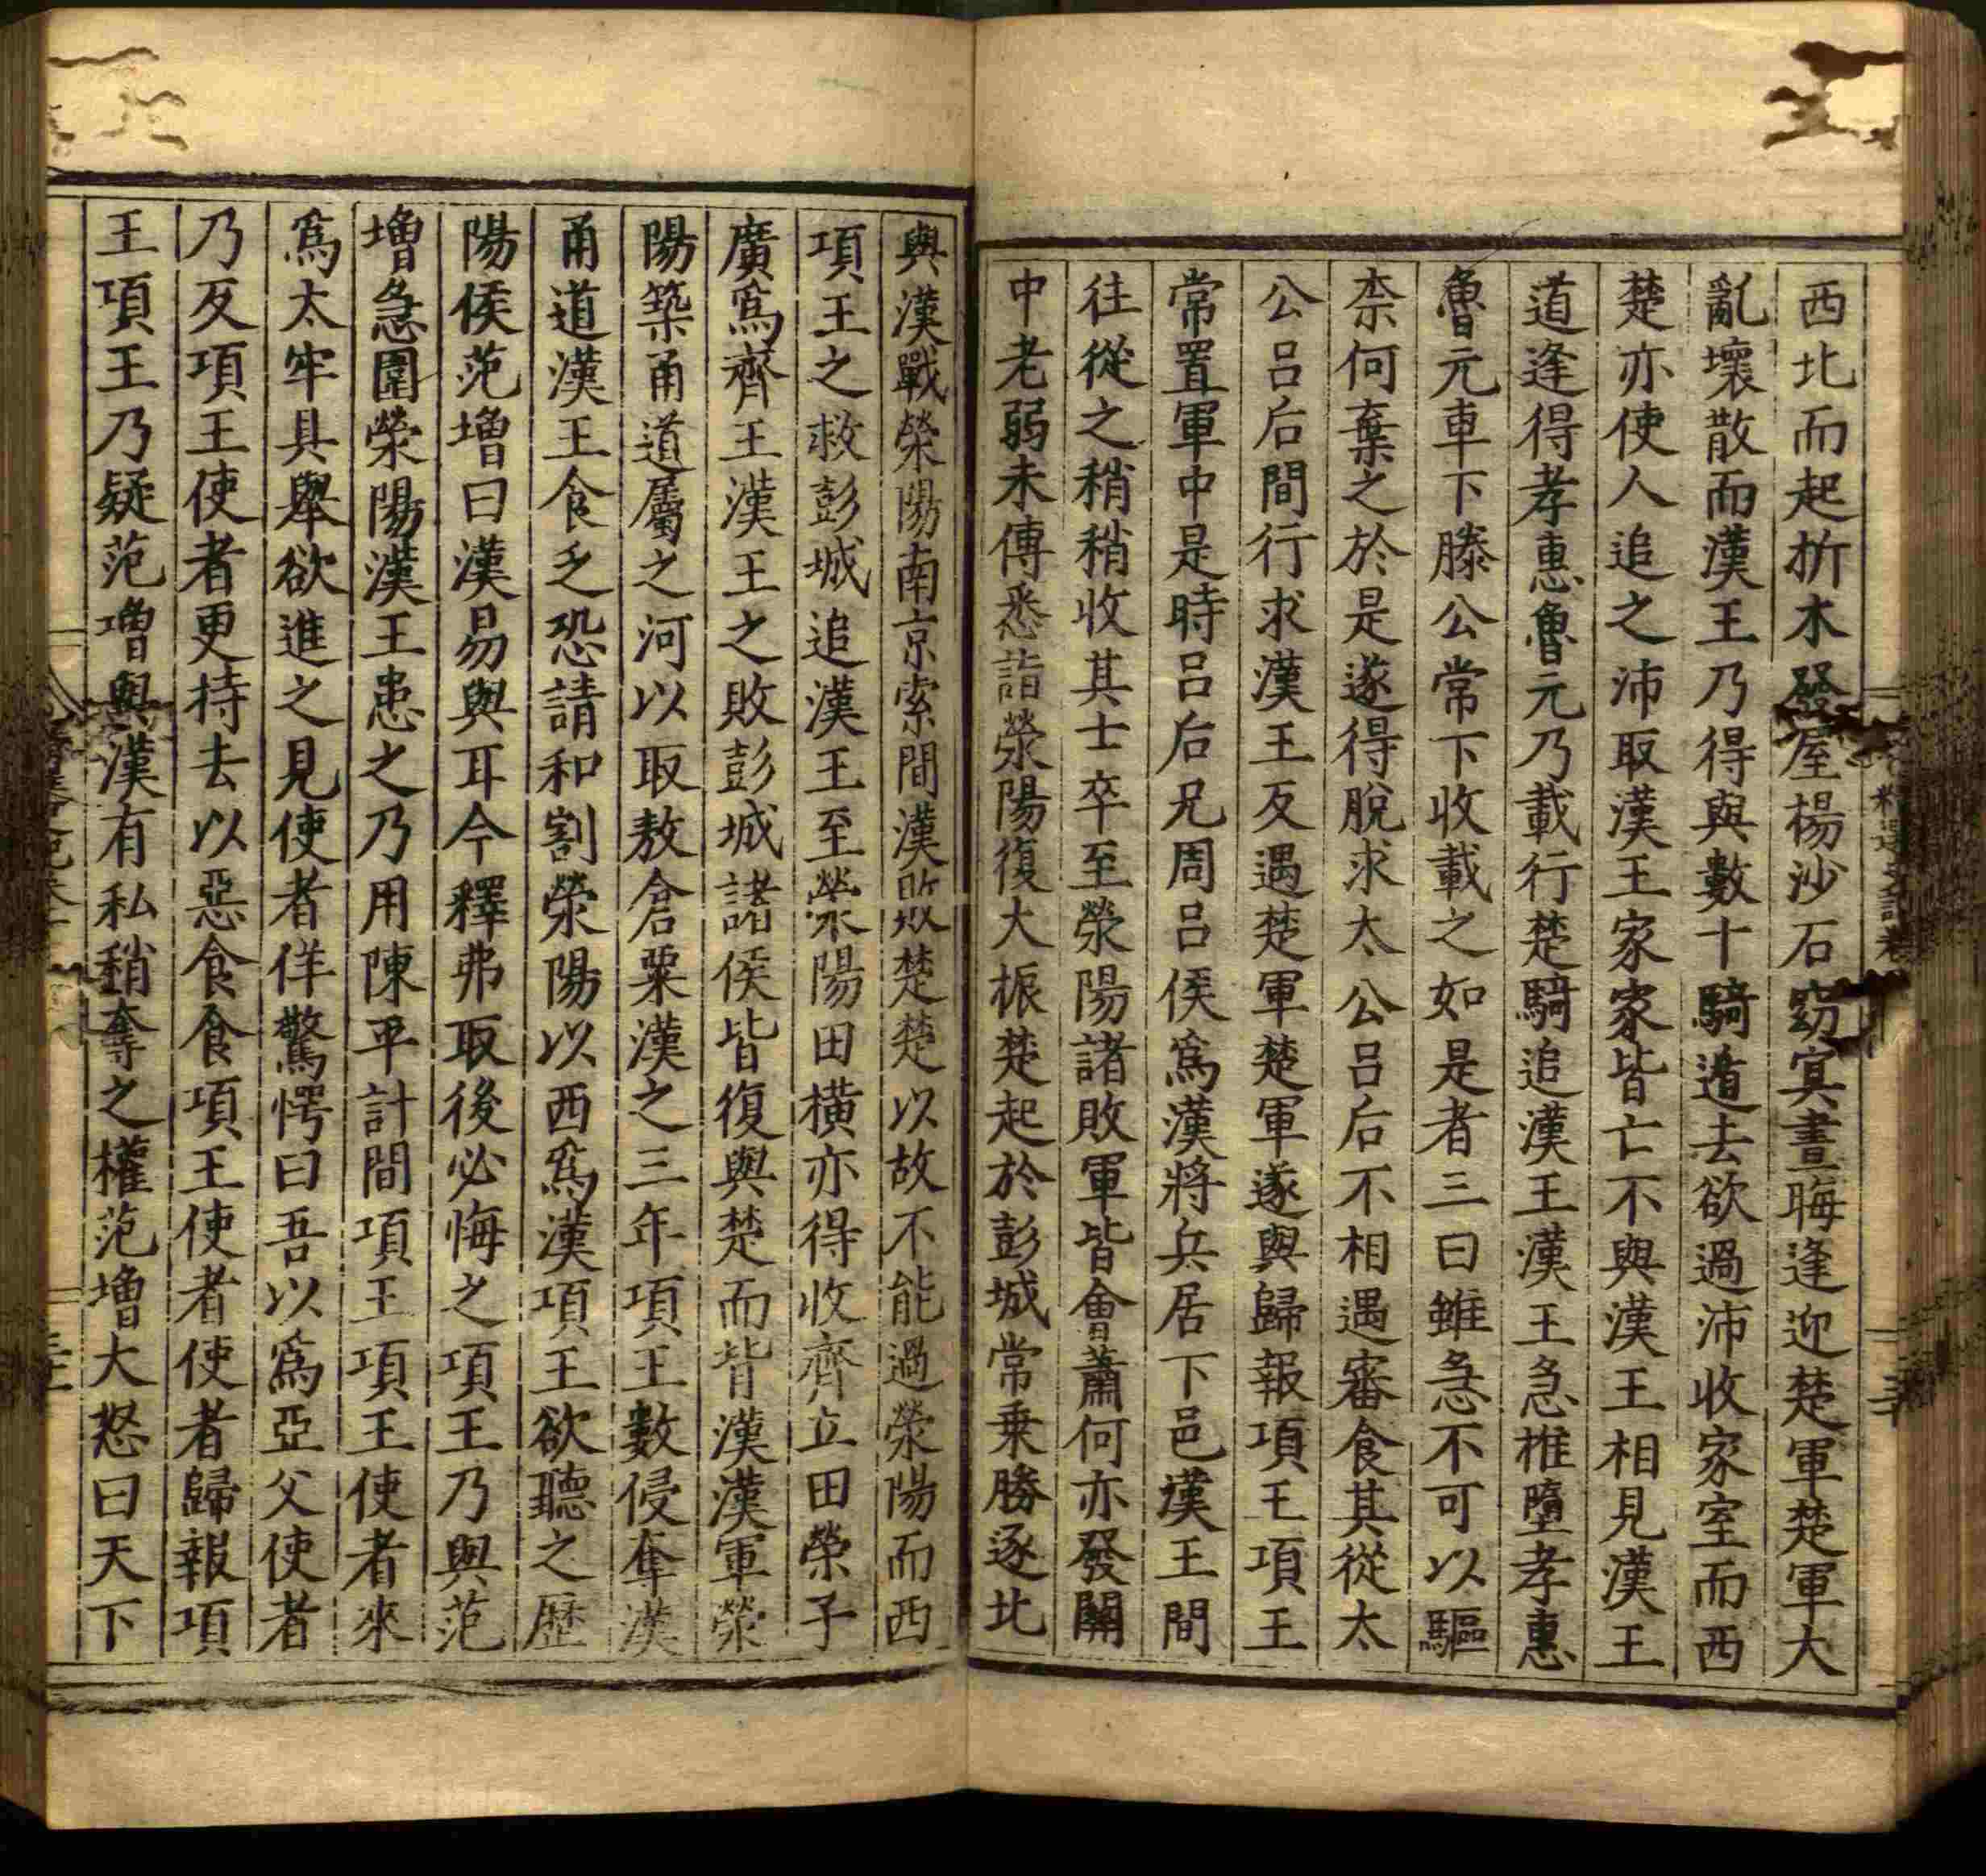 西北而起折木發屋楊沙石窈冥晝晦逢迎楚軍楚軍大
亂壞散而漢王乃得與數十騎遁去欲過沛收家室而西
楚亦使人追之沛取漢王家家皆亡不與漢王相見漢王
道逢得孝惠魯元乃載行楚騎追漢王漢王急推墮孝惠
魯元車下滕公常下收載之如是者三曰雖急不可以驅
柰何棄之於是遂得脫求太公呂后不相遇審食其從太
公呂后間行求漢王反遇楚軍楚軍遂與歸報項王項王
常置軍中是時呂后兄周呂侯爲漢將兵居下邑漢王間
往從之稍稍收其士卒至滎陽諸敗軍皆會蕭何亦發關
中老弱未傳悉詣滎陽復大振楚起於彭城常乗勝逐北
與漢戰滎陽南京索間漢敗楚楚以故不能過滎陽而西
項王之救彭城追漢王至滎陽田橫亦得收齊立田榮子
廣爲齊王漢王之敗彭城諸侯皆復與楚而背漢漢軍滎
陽築甬道屬之河以取敖倉粟漢之三年項王數侵奪漢
甬道漢王食乏恐請和割滎陽以西爲漢項王欲聽之歷
陽侯范増曰漢易與耳今釋弗取後必悔之項王乃與范
増急圍滎陽漢王患之乃用陳平計間項王項王使者來
爲太牢具舉欲進之見使者佯驚愕曰吾以爲亞父使者
乃反項王使者更持去以惡食食項王使者使者歸報項
王項王乃疑范增與漢有私稍奪之權范增大怒曰天下